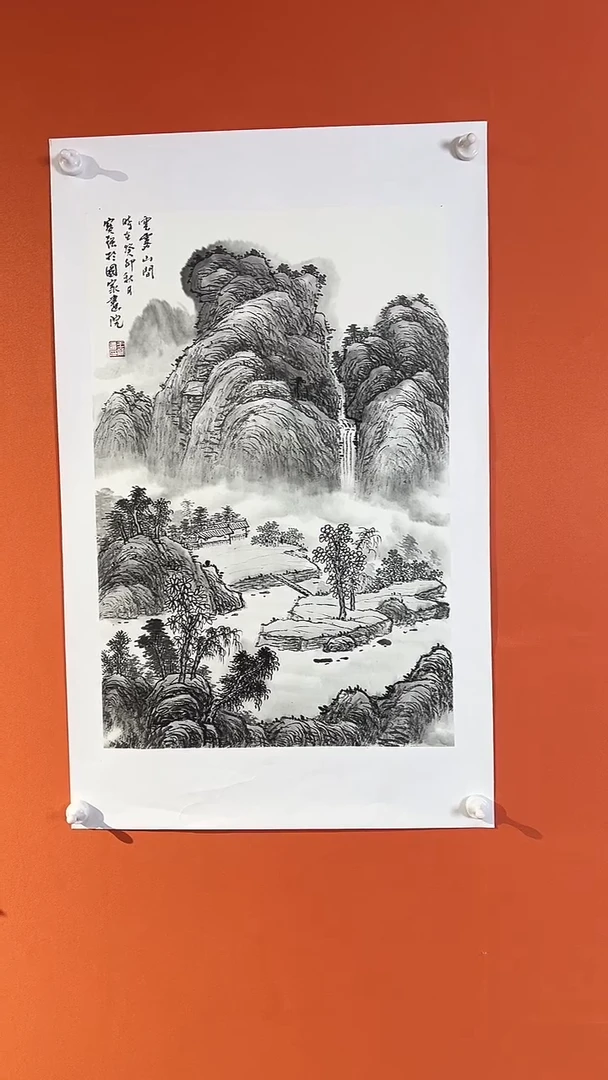 雲雾山間
時在癸卯秋月
寳强於國家畫院